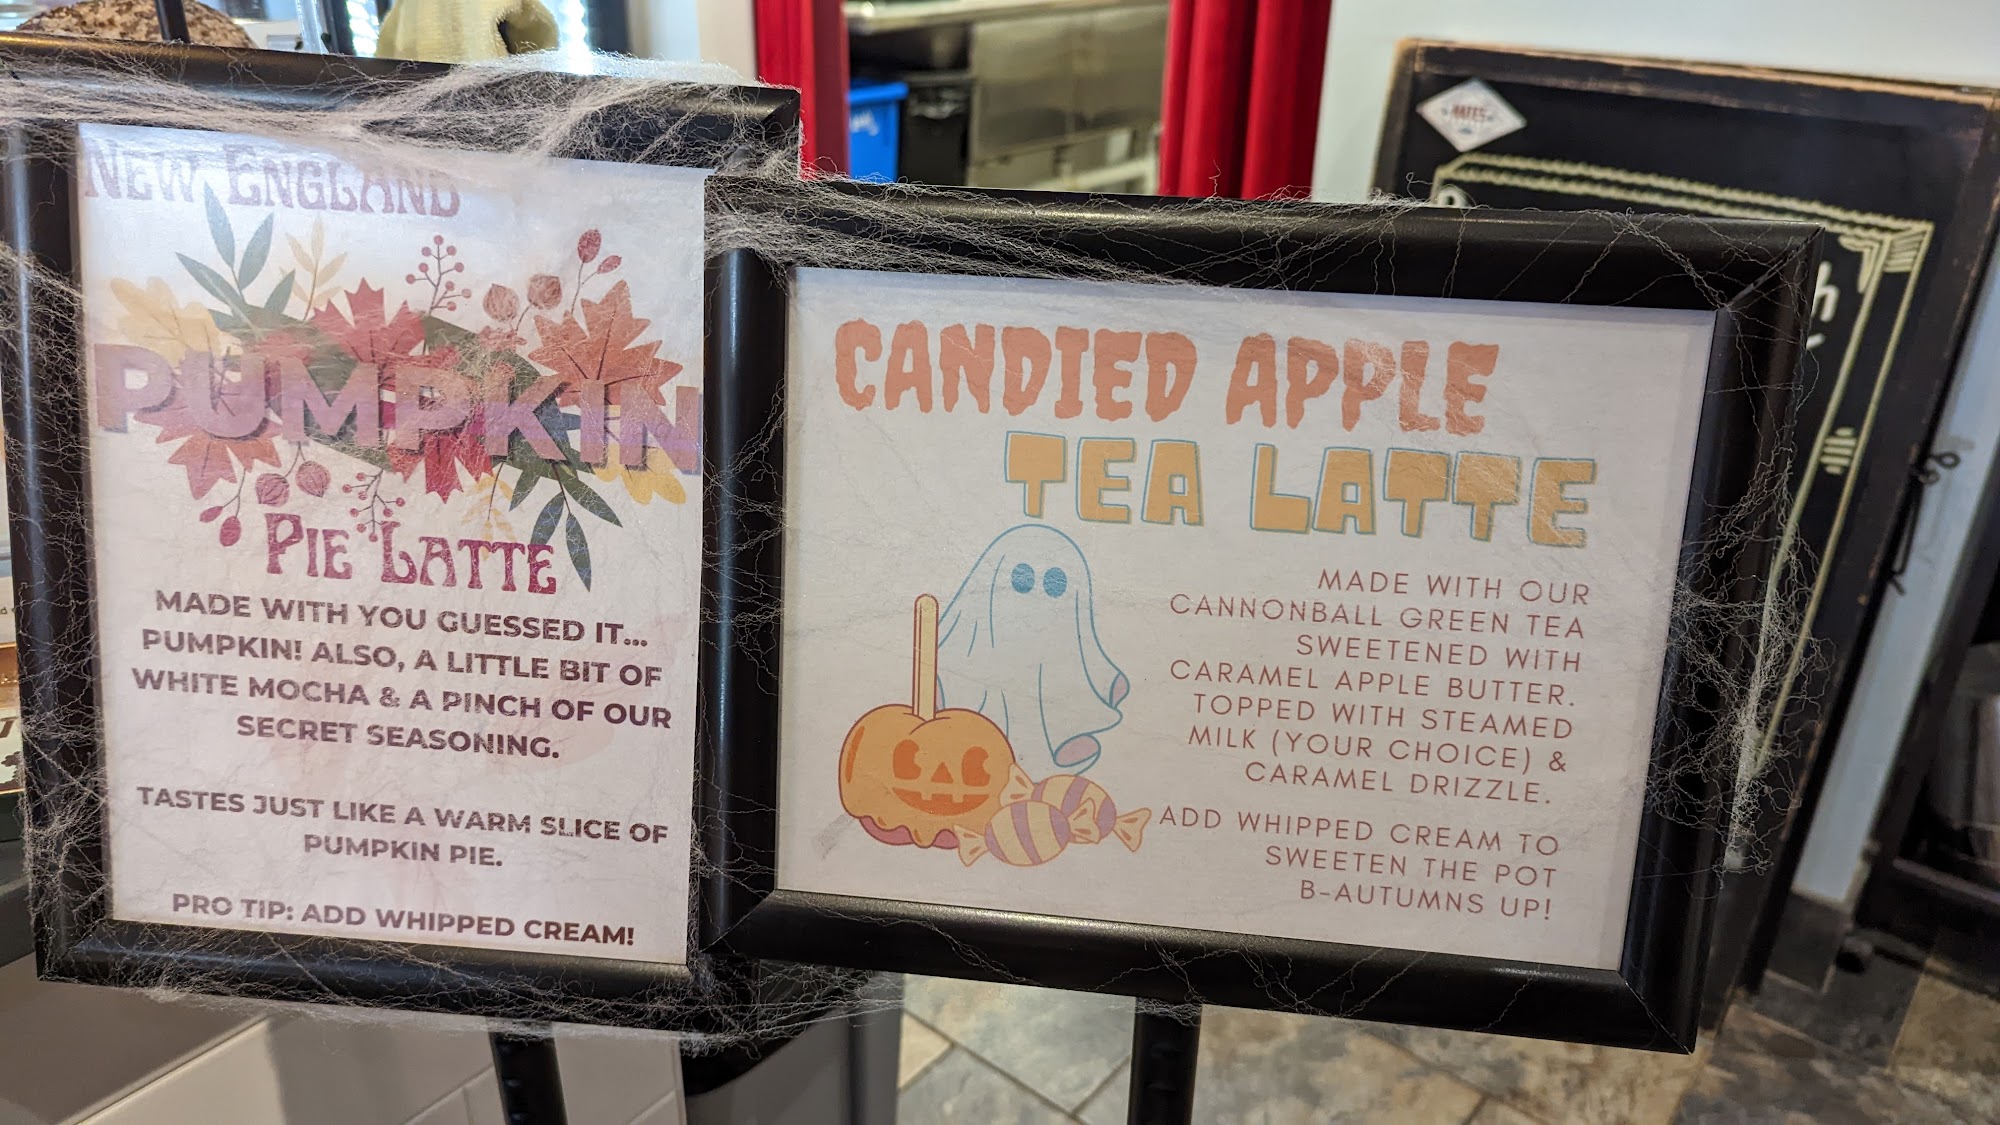 NEW ENGLAND
PUMPKIN
PIE LATTE
MADE WITH YOU GUESSED IT...
PUMPKIN! ALSO, A LITTLE BIT OF
WHITE MOCHA & A PINCH OF OUR
SECRET SEASONING.
TASTES JUST LIKE A WARM SLICE OF
PUMPKIN PIE.
PRO TIP: ADD WHIPPED CREAM!
CANDIED APPLE
TEA LATTE
MADE WITH OUR
CANNONBALL GREEN TEA
SWEETENED WITH
CARAMEL APPLE BUTTER.
TOPPED WITH STEAMED
MILK (YOUR CHOICE) &
CARAMEL DRIZZLE.
ADD WHIPPED CREAM TO
SWEETEN THE POT
B-AUTUMNS UP!